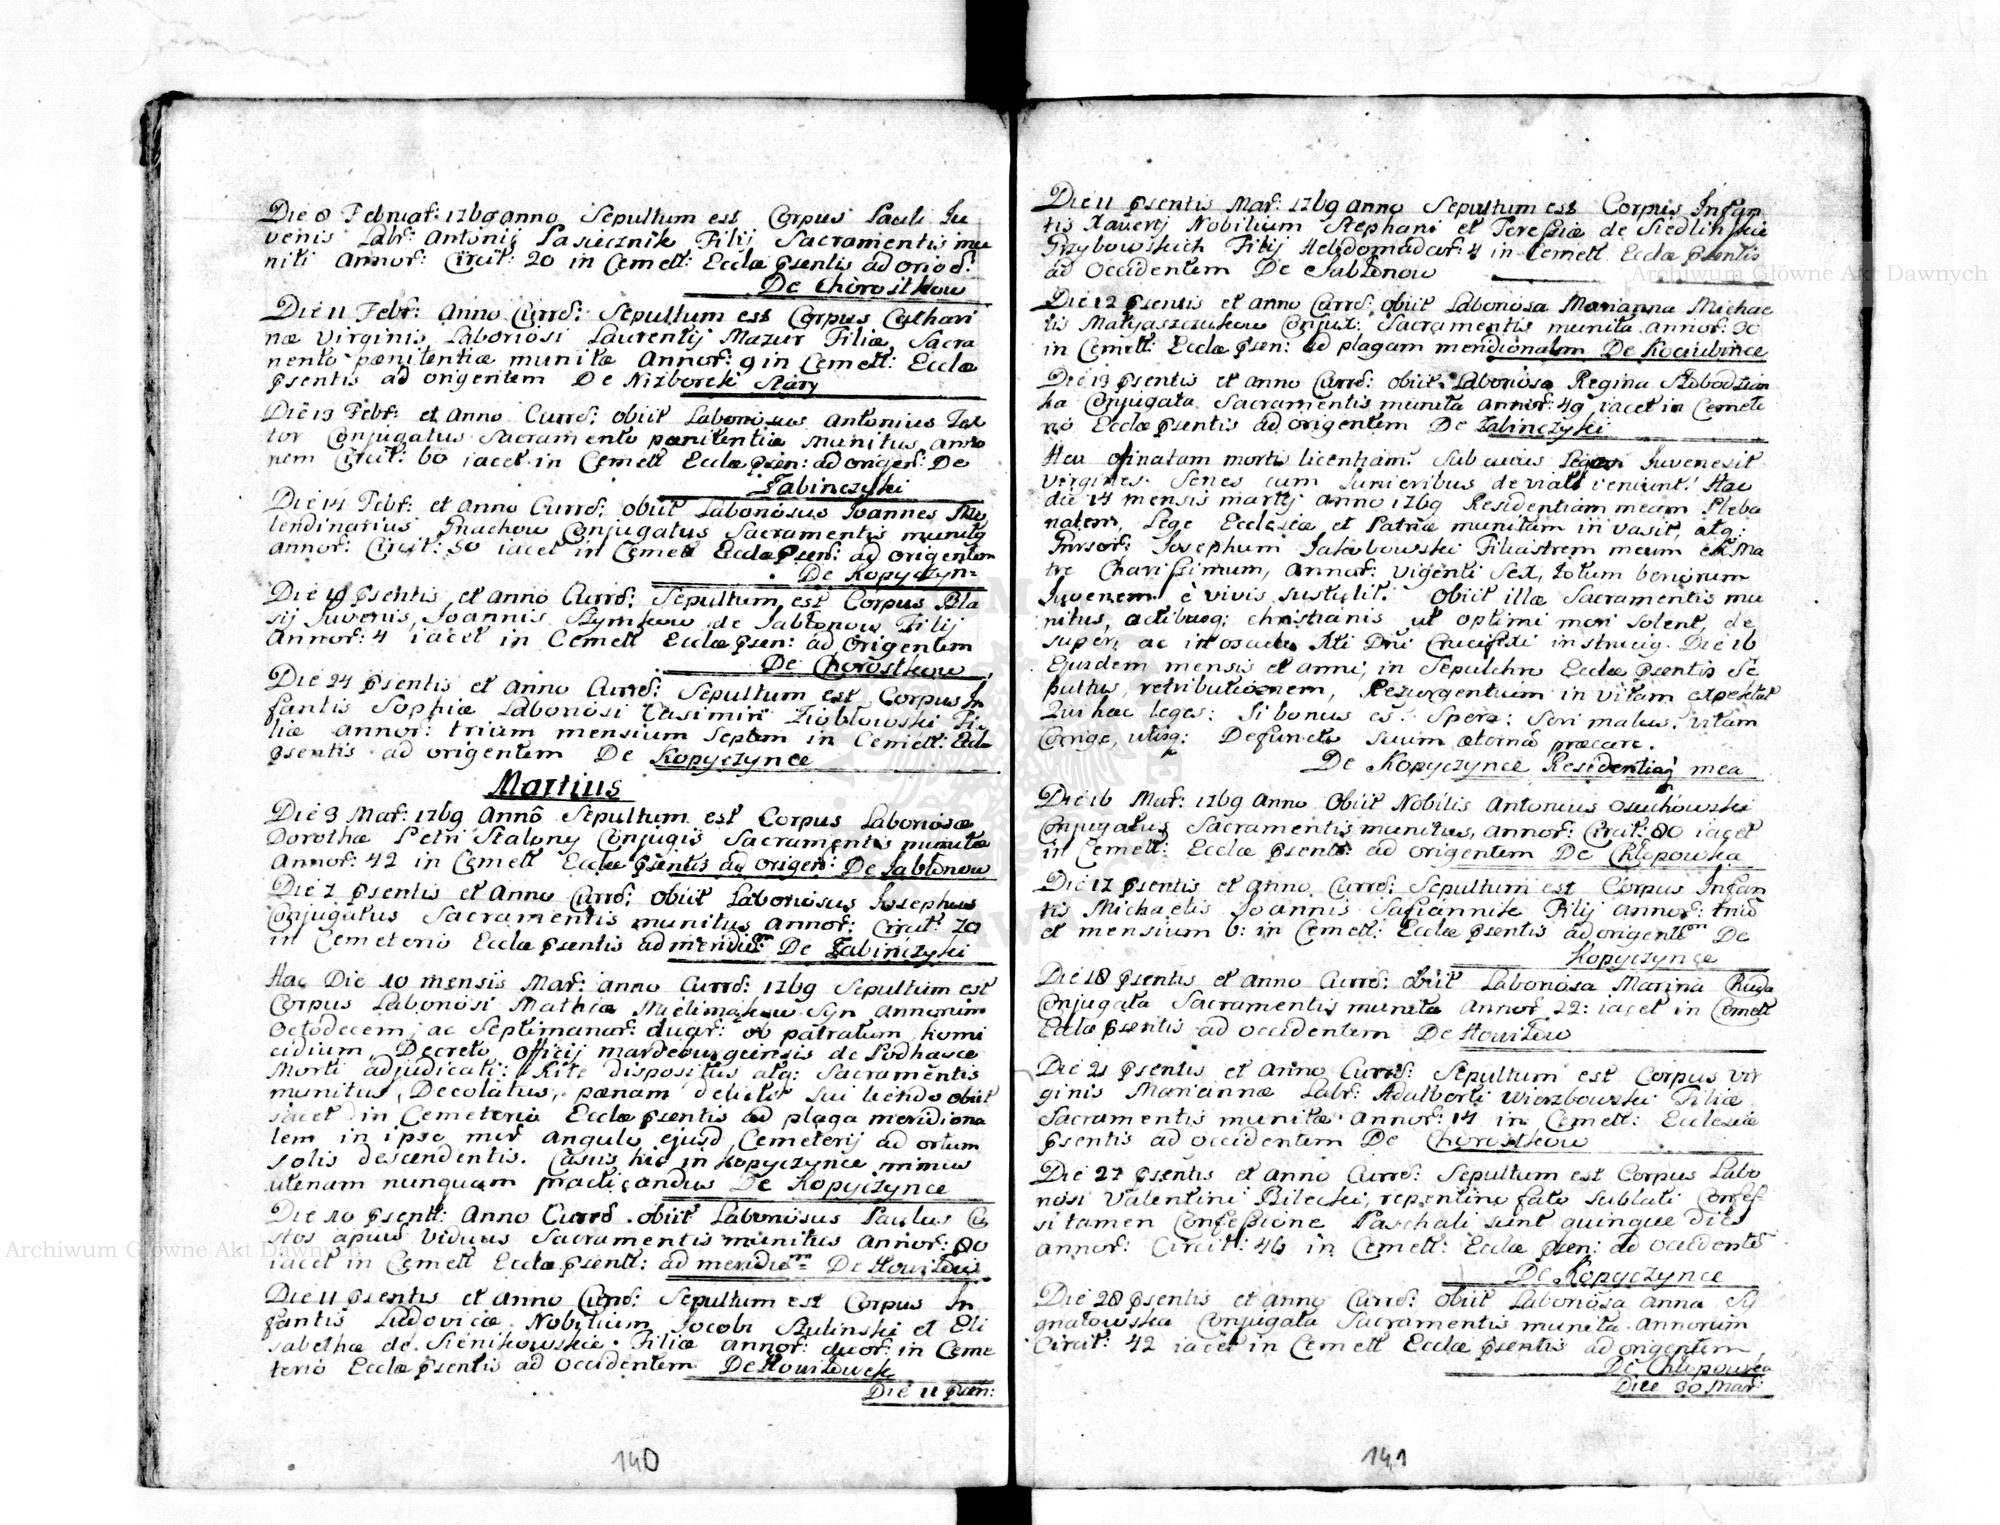 Die 8 Februar: 1769 anno Sepultum est Corpus Pauli Ju
venis Labr: Antonij Pasiecznik Filij Sacramentis mu
niti Annor: Circit: 20 in Cemett: Ecclæ psentis ad orige:
De Chorostkow
Die 11 Febr: Anno Curre: Sepultum est Corpus Cathari
næ Virginis Laboriosi Laurentij Mazur Filiæ, Sacra
mento pænitentiæ munitæ Annor: 9 in Cemett: Ecclæ
psentis ad origentem De Nizborek Stary
Die 13 Febr: et Anno Curre: obiit Laboriosus Antonius
tor Conjugatus Sacramento pænitentiæ munitus anno
rum Circit: 60 iacet in Cemett Ecclæ psen: ad origen: De
Zabinczyki
Die 14 Febr: et Anno Curre: obiit Laboriosus Joannes Mo
lendinarius Gnachow Conjugatus Sacramentis munitg
annor: Circit: 50 iacet in Cemett Ecclæ psen: ad origentem
De Kopyczyn=
Die psentis et anno Curre: Sepultum est Corpus Bla
sij Juvenis, Joannis Szymkow de Jabłonow Filij
Annor: 4 iacet in Cemett Ecclæ psen: ad Origentem
De Chorostkow
Die 24 psentis et Anno Curre: Sepultum est Corpus In
fantis Sophiæ Laboriosi Casimiri Ziobłowski Fi
liæ annor: trium mensium Septem in Cemett: Eccl
psentis ad origentem De Kopyczynce
Martius
Die 3 Mar: 1769 Annô Sepultum est Corpus Laboriosæ
Dorothæ Petri Stalony Conjugis Sacramentis munitæ
Annor: 42 in Cemett Ecclæ psentis ad origen: De Jabłonow
Die 7 psentis et Anno Curre: obiit Laboriosus Josephus
Conjugatus Sacramentis munitus Annor: Circit: 70
in Cemeterio Ecclæ psentis ad meridiem De Zabinczyki
Hac Die 10 mensis Mar: anno Curre: 1769 Sepultum est
Corpus Laboriosi Mathiæ Syn annorum
Octodecem, ac Septimanar: duar: ob patratum homi
cidium, Decreto officij mardeburgensis de Podhayce
Morti adjudicati: Rite dispositus atq: Sacramentis
munitus, Decolatus, pænam delicti sui luendo obiit
iacet in Cemeterio Ecclæ psentis ad plaga meridiona
lem in ipso mur angulo ejusd Cemeterij ad ortum
solis descendentis. Casus hic in Kopyczynce primus
utenam nunquam practicandus De Kopyczynce
Die 10 psent: Anno Curre obiit Laboriosus Paulus Cu
stos apum Viduus Sacramentis munitus Annor: 80
iacet in Cemett Ecclæ psent: ad meridiem De Howiłow
Die 11 psentis et Anno Curre: Sepultum est Corpus In
fantis Ludovicæ Nobilium Jacobi Szulinski et Eli
sabethæ de Sienikowskie Filiæ annor: duor: in Ceme
terio Ecclæ psentis ad Occidentem De Howiłowek
Die 11 psen:
140
Die 11 psentis Mar: 1769 anno Sepultum est Corpus Infan
tis Xaverij Nobilium Stephani et Teresiæ de Siedlinskie
Grzybowskich Filij Hebdomadar: 4 in Cemett Ecclæ psentis
ad Occidentem De Jabłonow
Die 12 psentis et anno Curre: obiit Laboriosa Marianna Michae
lis Matyaszczukow Conjux: Sacramentis munita annor: 30
in Cemett: Ecclæ psen: ad plagam meridionalem De Kociubince
Die 13 psentis et anno Curre: obiit Laboriosa Regina Słobodzian
ka Conjugata Sacramentis munita annor: 49 iacet in Cemete
rio Ecclæ psentis ad origentem De Zabinczyki
Heu ofinatam mortis licentiam! Sub cuius Juvenes it
Virgines. Senes cum Junioribus deviati veniunt! Hac
die 14 mensis martij anno 1769 Residentiam meam Pleba
nalem, Lege Ecclesiæ et Patriæ munitam invasit, atq:
Gnrsor: Josephum Jakubowski Filiastrem meum ex Ma
tre Charissimum, annor: viginti Sex, totum bonorum
Juvenem è vivis sustulit. Obiit ille Sacramentis mu
nitus, actibusq: christianis ut optimi mori solent, de
super, ac in osculo Xti Dni Crucifixi instructg. Die 16
Ejusdem mensis et anni, in Sepulchro Ecclæ psentis Se
pultus, retributionem, Resurgentium in vitam expectat
Qui hac leges: Si bonus es: Spera: Sivi malus: vitam
Corrige, utrisq: Defuncto suum æternâ præcare.
De Kopyczynce Residentia mea
Die 16 Mar: 1769 Anno Obiit Nobilis Antonius Osuchowski
Conjugatus Sacramentis munitus, annor: Circit: 80 iacet
in Cemett: Ecclæ psentis ad origentem De Chłopowka
Die 17 psentis et anno Curre: Sepultum est Corpus Infan
tis Michaelis Joannis Safiannik Filij annor: trium
et mensium 6: in Cemett: Ecclæ psentis ad origentem De
Kopyczynce
Die 18 psentis et anno Curre: obiit Laboriosa Marina Ruda
Conjugata Sacramentis munita Annor 22: iacet in Cemett
Ecclæ psentis ad Occidentem De Howiłow
Die 21 psentis et Anno Curre: Sepultum est Corpus Vir
ginis Mariannæ Labr: Adalberti Wierzbowski Filiæ
Sacramentis munitæ Annor: 14 in Cemett: Ecclesiæ
psentis ad Occidentem De Chorostkow
Die 27 psentis et anno Curre: Sepultum est Corpus Labo
riosi Valentini Bilecki, repentino fato sublati Confes
si tamen Confessione Paschali sunt quinque dies
annor: Circit: 46 in Cemett: Ecclæ psen: ad Occidentê
De Kopyczynce
Die 28 psentis et anno Curre: obiit Laboriosa Anna Sy
gnatowska Conjugata Sacramentis munita Annorum
Circit: 42 iacet in Cemett Ecclæ psentis ad origentem
De Chłopowka
Diee 30 Mar:
141
Archiwum Główne Akt Dawnych
Archiwum Główne Akt Dawnych